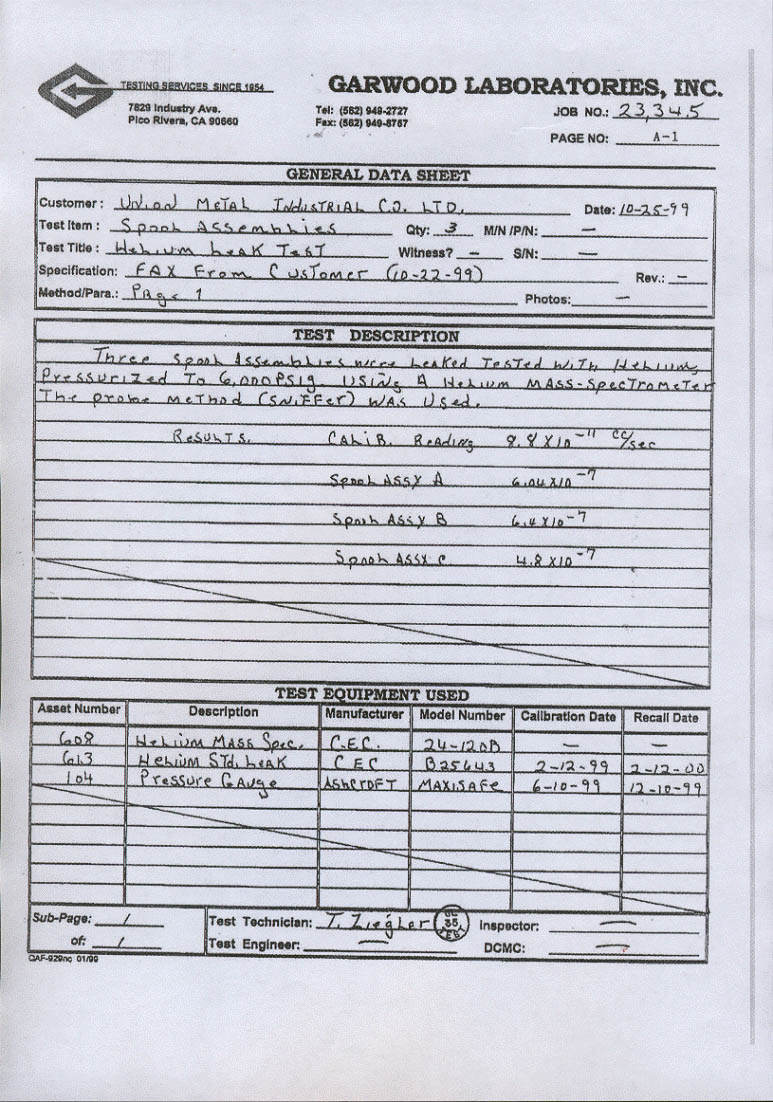 TESTING SERVICES SINCE 1954
GARWOOD LABORATORIES, INC.
7829 Industry Ave.
Pico Rivera, CA 90660
Tel: (562) 949-2727
Fax: (562) 949-8757
JOB NO.: 23,345
PAGE NO: A-1
GENERAL DATA SHEET
Customer: Union Metal Industrial CO. LTD. Date: 10-25-99
Test Item: Spook Assemblies Qty: 3 M/N /P/N: —
Test Title: Helium Leak Test Witness? — S/N: —
Specification: FAX From Customer (10-22-99) Rev.: —
Method/Para.: Page 1 Photos: —
TEST DESCRIPTION
Three Spook Assemblies were Leaked Tested with Helium,
Pressurized To 6,000PSIG. Using A Helium Mass-Spectrometer
The probe method (SNiFFer) WAS Used.
Results. CALIB. Reading 8.8X10-11 cc/sec
Spook Assy A 6.04X10-7
Spook Assy B 6.4X10-7
Spook Assy C 4.8X10-7
TEST EQUIPMENT USED
Asset Number Description Manufacturer Model Number Calibration Date Recall Date
608 Helium Mass Spec. C.E.C. 24-120B — —
613 Helium Std. Leak CEC B25643 2-12-99 2-12-00
104 Pressure Gauge Ashcroft MAXISAFE 6-10-99 12-10-99
Sub-Page: 1
of: 1
Test Technician: T. Ziegler Inspector: —
Test Engineer: — DCMC: —
QAF-929nc 01/99